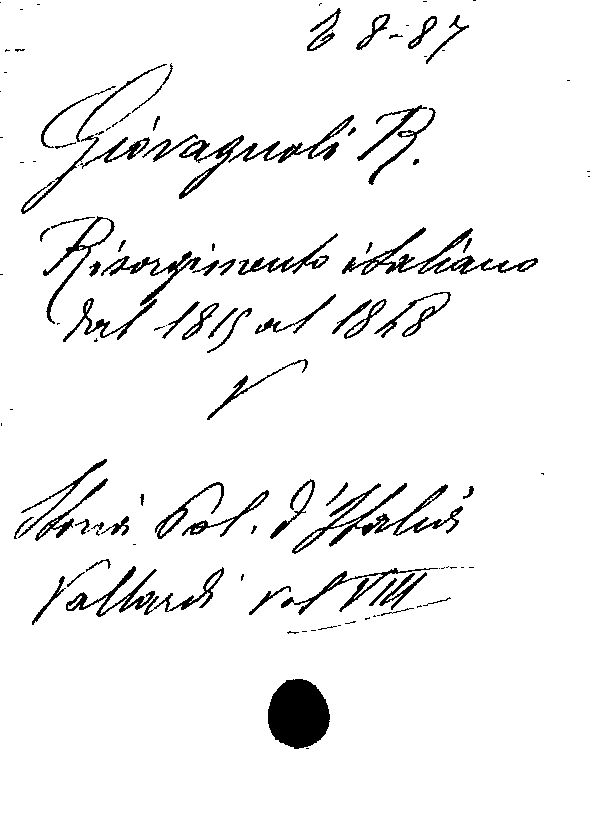 8-87
Giovagnoli R.
Risorgimento italiano
dal 1815 al 1848
V
Storia Pol. d'Italia
Vallardi vol VIII